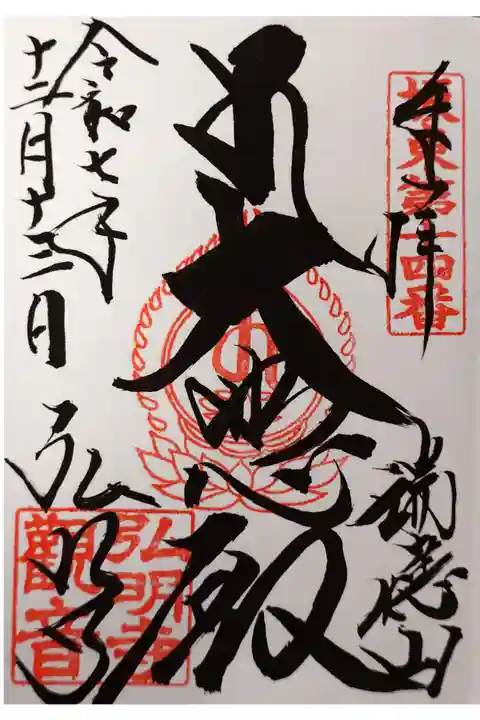 奉拝
坂東第十四番
瑞應山
大悲殿
弘明寺
弘明寺
觀音
令和七年
十二月十二日